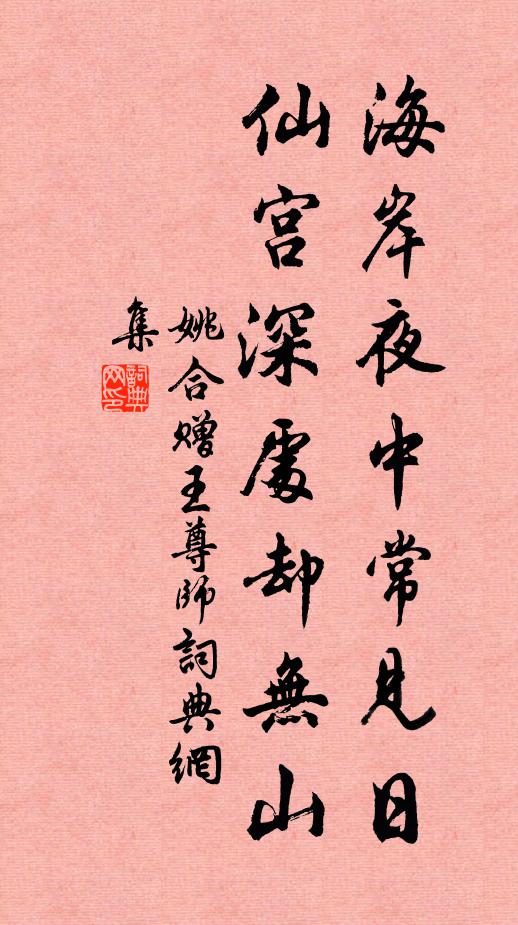 海岸夜中常見日
仙宮深處却無山
姚合贈王尊師詞典網
集
詞典
网印